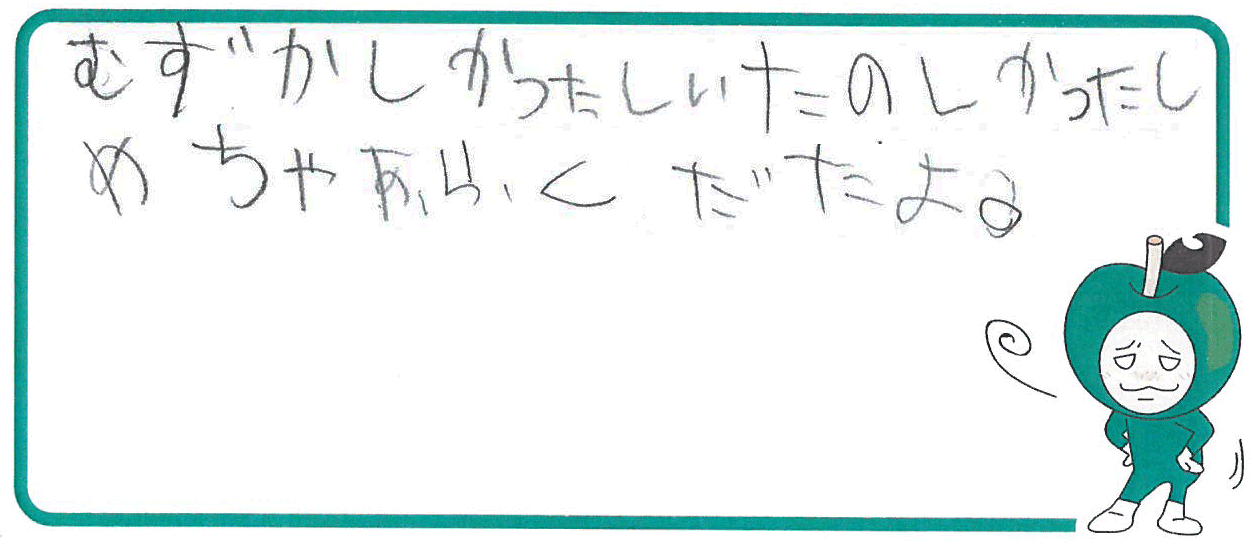 むずかしかったしいたのしかったし
めちゃ だたよ